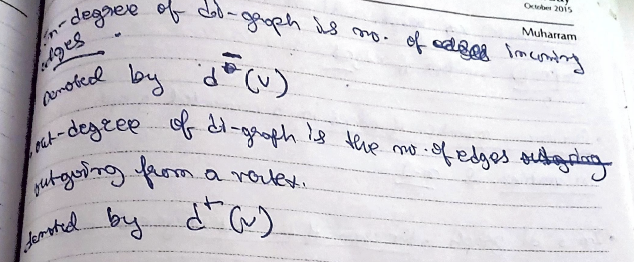 October 2015
Muharram
in-degree of di-graph is no. of edges incoming
edges.
denoted by d⁻(v)
out-degree of di-graph is the no. of edges outgoing
outgoing from a vertex.
denoted by d⁺(v)